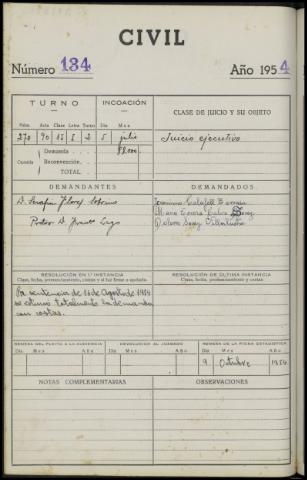 CIVIL
Número 134 Año 1954
TURNO INCOACIÓN CLASE DE JUICIO Y SU OBJETO
Núm. Acta Clase Letra Turno Día Mes
270 90 15 I 2 5 julio Juicio ejecutivo
Demanda 88.000.
Cuantía Reconvención.
TOTAL
DEMANDANTES DEMANDADOS:
D. Serafín
Proc. D.
RESOLUCIÓN EN 1.ª INSTANCIA RESOLUCIÓN EN ÚLTIMA INSTANCIA
Clase, fecha, pronunciamiento, costas y si fue firme o apelada Clase, fecha, pronunciamiento y costas
Por sentencia de 16 de Agosto de 1954
se estimó totalmente la demanda
con costas.
REMESA DEL PLEITO A LA AUDIENCIA DEVOLUCIÓN AL JUZGADO REMESA DE LA FICHA ESTADÍSTICA
Día Mes Año Día Mes Año Día Mes Año
9 Octubre 1954
NOTAS COMPLEMENTARIAS OBSERVACIONES